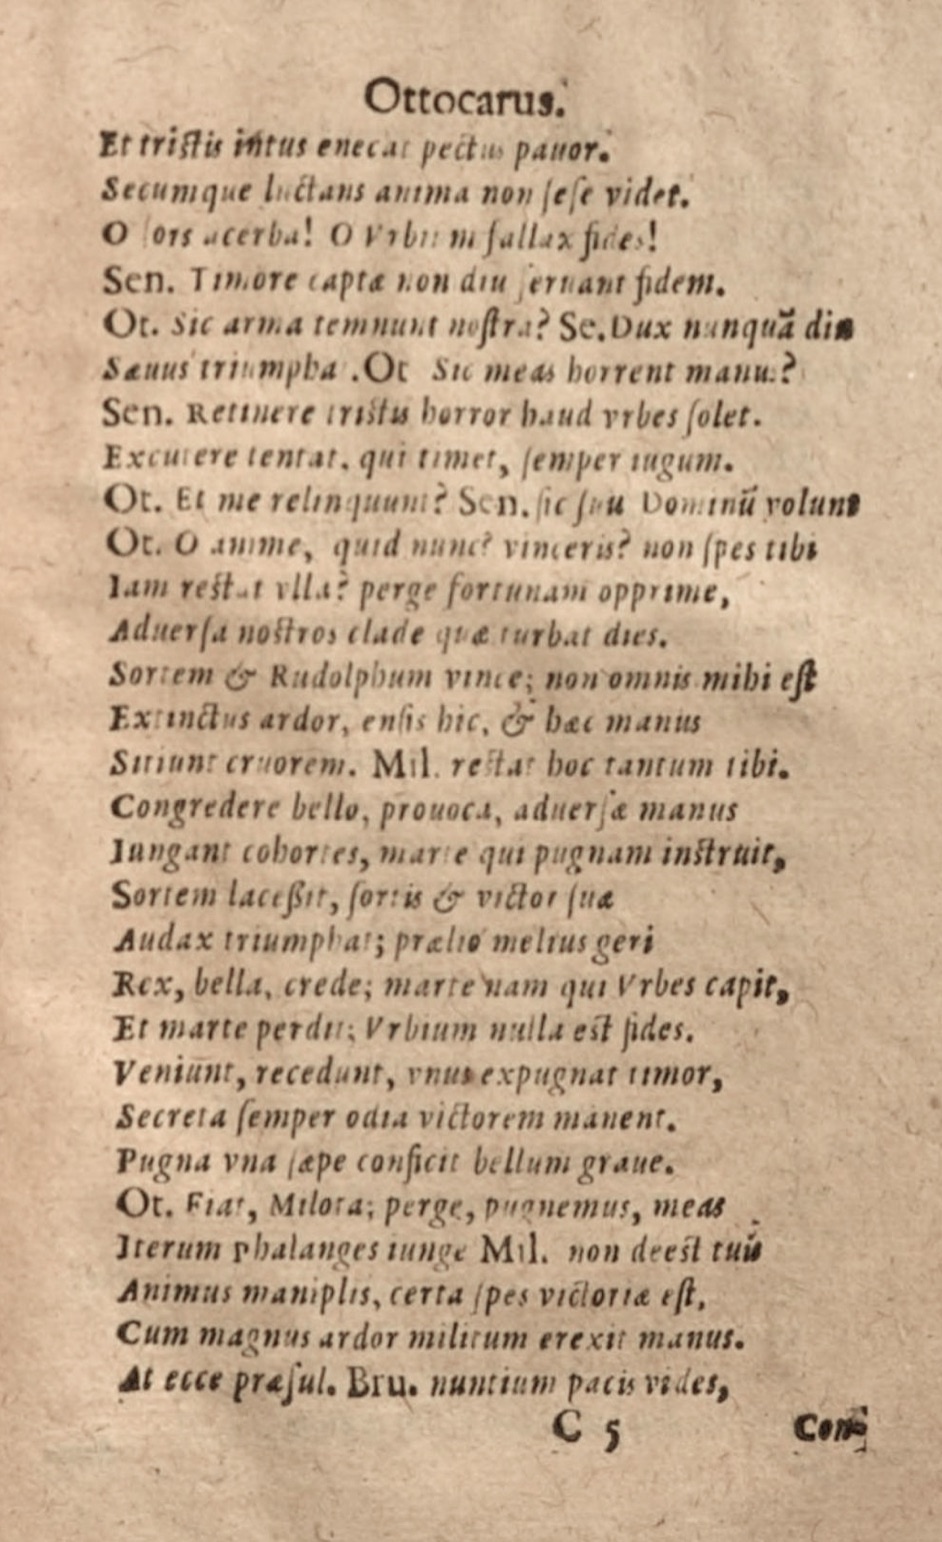 Ottocarus.
Et tristis intus enecat pectus pauor.
Secumque luctans anima non sese videt.
O sors acerba! O Vrbium fallax fides!
Sen. Timore captæ non diu seruant fidem.
Ot. Sic arma temnunt nostra? Se. Dux nunquã diu
Sæuus triumpha . Ot Sic meas horrent manus?
Sen. Retinere tristis horror haud vrbes solet.
Excutere tentat, qui timet, semper iugum.
Ot. Et me relinquunt? Sen. sic suu Dominũ volunt
Ot. O anime, quid nunc? vinceris? non spes tibi
Iam restat vlla? perge fortunam opprime,
Aduersa nostros clade quæ turbat dies.
Sortem & Rudolphum vince; non omnis mihi est
Extinctus ardor, ensis hic, & hæc manus
Sitiunt cruorem. Mil. restat hoc tantum tibi.
Congredere bello, prouoca, aduersæ manus
Iungant cohortes, marte qui pugnam instruit,
Sortem laceßit, sortis & victor suæ
Audax triumphat; prælio melius geri
Rex, bella, crede; marte nam qui Vrbes capit,
Et marte perdit; Vrbium nulla est fides.
Veniunt, recedunt, vnus expugnat timor,
Secreta semper odia victorem manent.
Pugna vna sæpe conficit bellum graue.
Ot. Fiat, Milota; perge, pugnemus, meas
Iterum phalanges iunge Mil. non deest tuũ
Animus maniplis, certa spes victoriæ est,
Cum magnus ardor militum erexit manus.
At ecce præsul. Bru. nuntium pacis vides,
C 5 Con-